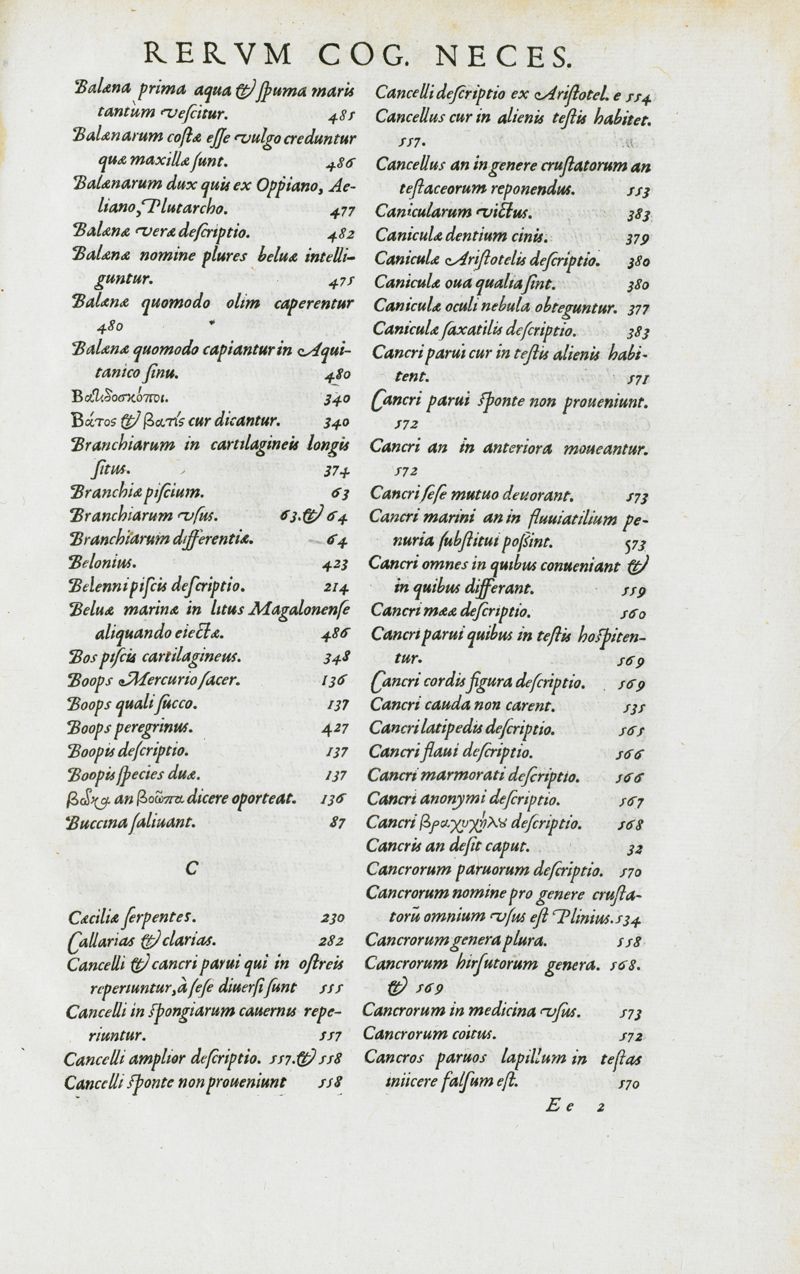 RERVM COG. NECES.
Balæna prima aqua & ſpuma maris
tantùm veſcitur. 485
Balænarum coſtæ eſſe vulgo creduntur
quæ maxillæ ſunt. 486
Balænarum dux quis ex Oppiano, Ae-
liano, Plutarcho. 477
Balænæ vera deſcriptio. 482
Balænæ nomine plures beluæ intelli-
guntur. 475
Balænæ quomodo olim caperentur
480
Balænæ quomodo capiantur in Aqui-
tanico ſinu. 480
340
Βάτος & βατίς cur dicantur. 340
Branchiarum in cartilagineis longis
ſitus. 374
Branchiæ piſcium. 63
Branchiarum vſus. 63. & 64
Branchiarum differentiæ. 64
Belonius. 423
Belenni piſcis deſcriptio. 214
Beluæ marinæ in litus Magalonenſe
aliquando eiectæ. 486
Bos piſcis cartilagineus. 348
Boops Mercurio ſacer. 136
Boops quali ſucco. 137
Boops peregrinus. 427
Boopis deſcriptio. 137
Boopis ſpecies duæ. 137
an βοῶπα dicere oporteat. 136
Buccina ſaliuant. 87
C
Cæciliæ ſerpentes. 230
Callarias & clarias. 282
Cancelli & cancri parui qui in oſtreis
reperiuntur, à ſeſe diuerſi ſunt 555
Cancelli in ſpongiarum cauernis repe-
riuntur. 557
Cancelli amplior deſcriptio. 557. & 558
Cancelli ſponte non proueniunt 558
Cancelli deſcriptio ex Ariſtotel. e 554
Cancellus cur in alienis teſtis habitet.
557.
Cancellus an in genere cruſtatorum an
teſtaceorum reponendus. 553
Canicularum victus. 383
Caniculæ dentium cinis. 379
Caniculæ Ariſtotelis deſcriptio. 380
Caniculæ oua qualia ſint. 380
Caniculæ oculi nebula obteguntur. 377
Caniculæ ſaxatilis deſcriptio. 383
Cancri parui cur in teſtis alienis habi-
tent. 571
Cancri parui ſponte non proueniunt.
572
Cancri an in anteriora moueantur.
572
Cancri ſeſe mutuo deuorant. 573
Cancri marini an in fluuiatilium pe-
nuria ſubſtitui poſsint. 573
Cancri omnes in quibus conueniant &
in quibus differant. 559
Cancri mææ deſcriptio. 560
Cancri parui quibus in teſtis hoſpiten-
tur. 569
Cancri cordis figura deſcriptio. 569
Cancri cauda non carent. 535
Cancri latipedis deſcriptio. 565
Cancri flaui deſcriptio. 566
Cancri marmorati deſcriptio. 566
Cancri anonymi deſcriptio. 567
Cancri βραχυχήλȣ deſcriptio. 568
Cancris an deſit caput. 32
Cancrorum paruorum deſcriptio. 570
Cancrorum nomine pro genere cruſta-
torū omnium vſus eſt Plinius. 534
Cancrorum genera plura. 558
Cancrorum hirſutorum genera. 568.
& 569
Cancrorum in medicina vſus. 573
Cancrorum coitus. 572
Cancros paruos lapillum in teſtas
iniicere falſum eſt. 570
Ee 2